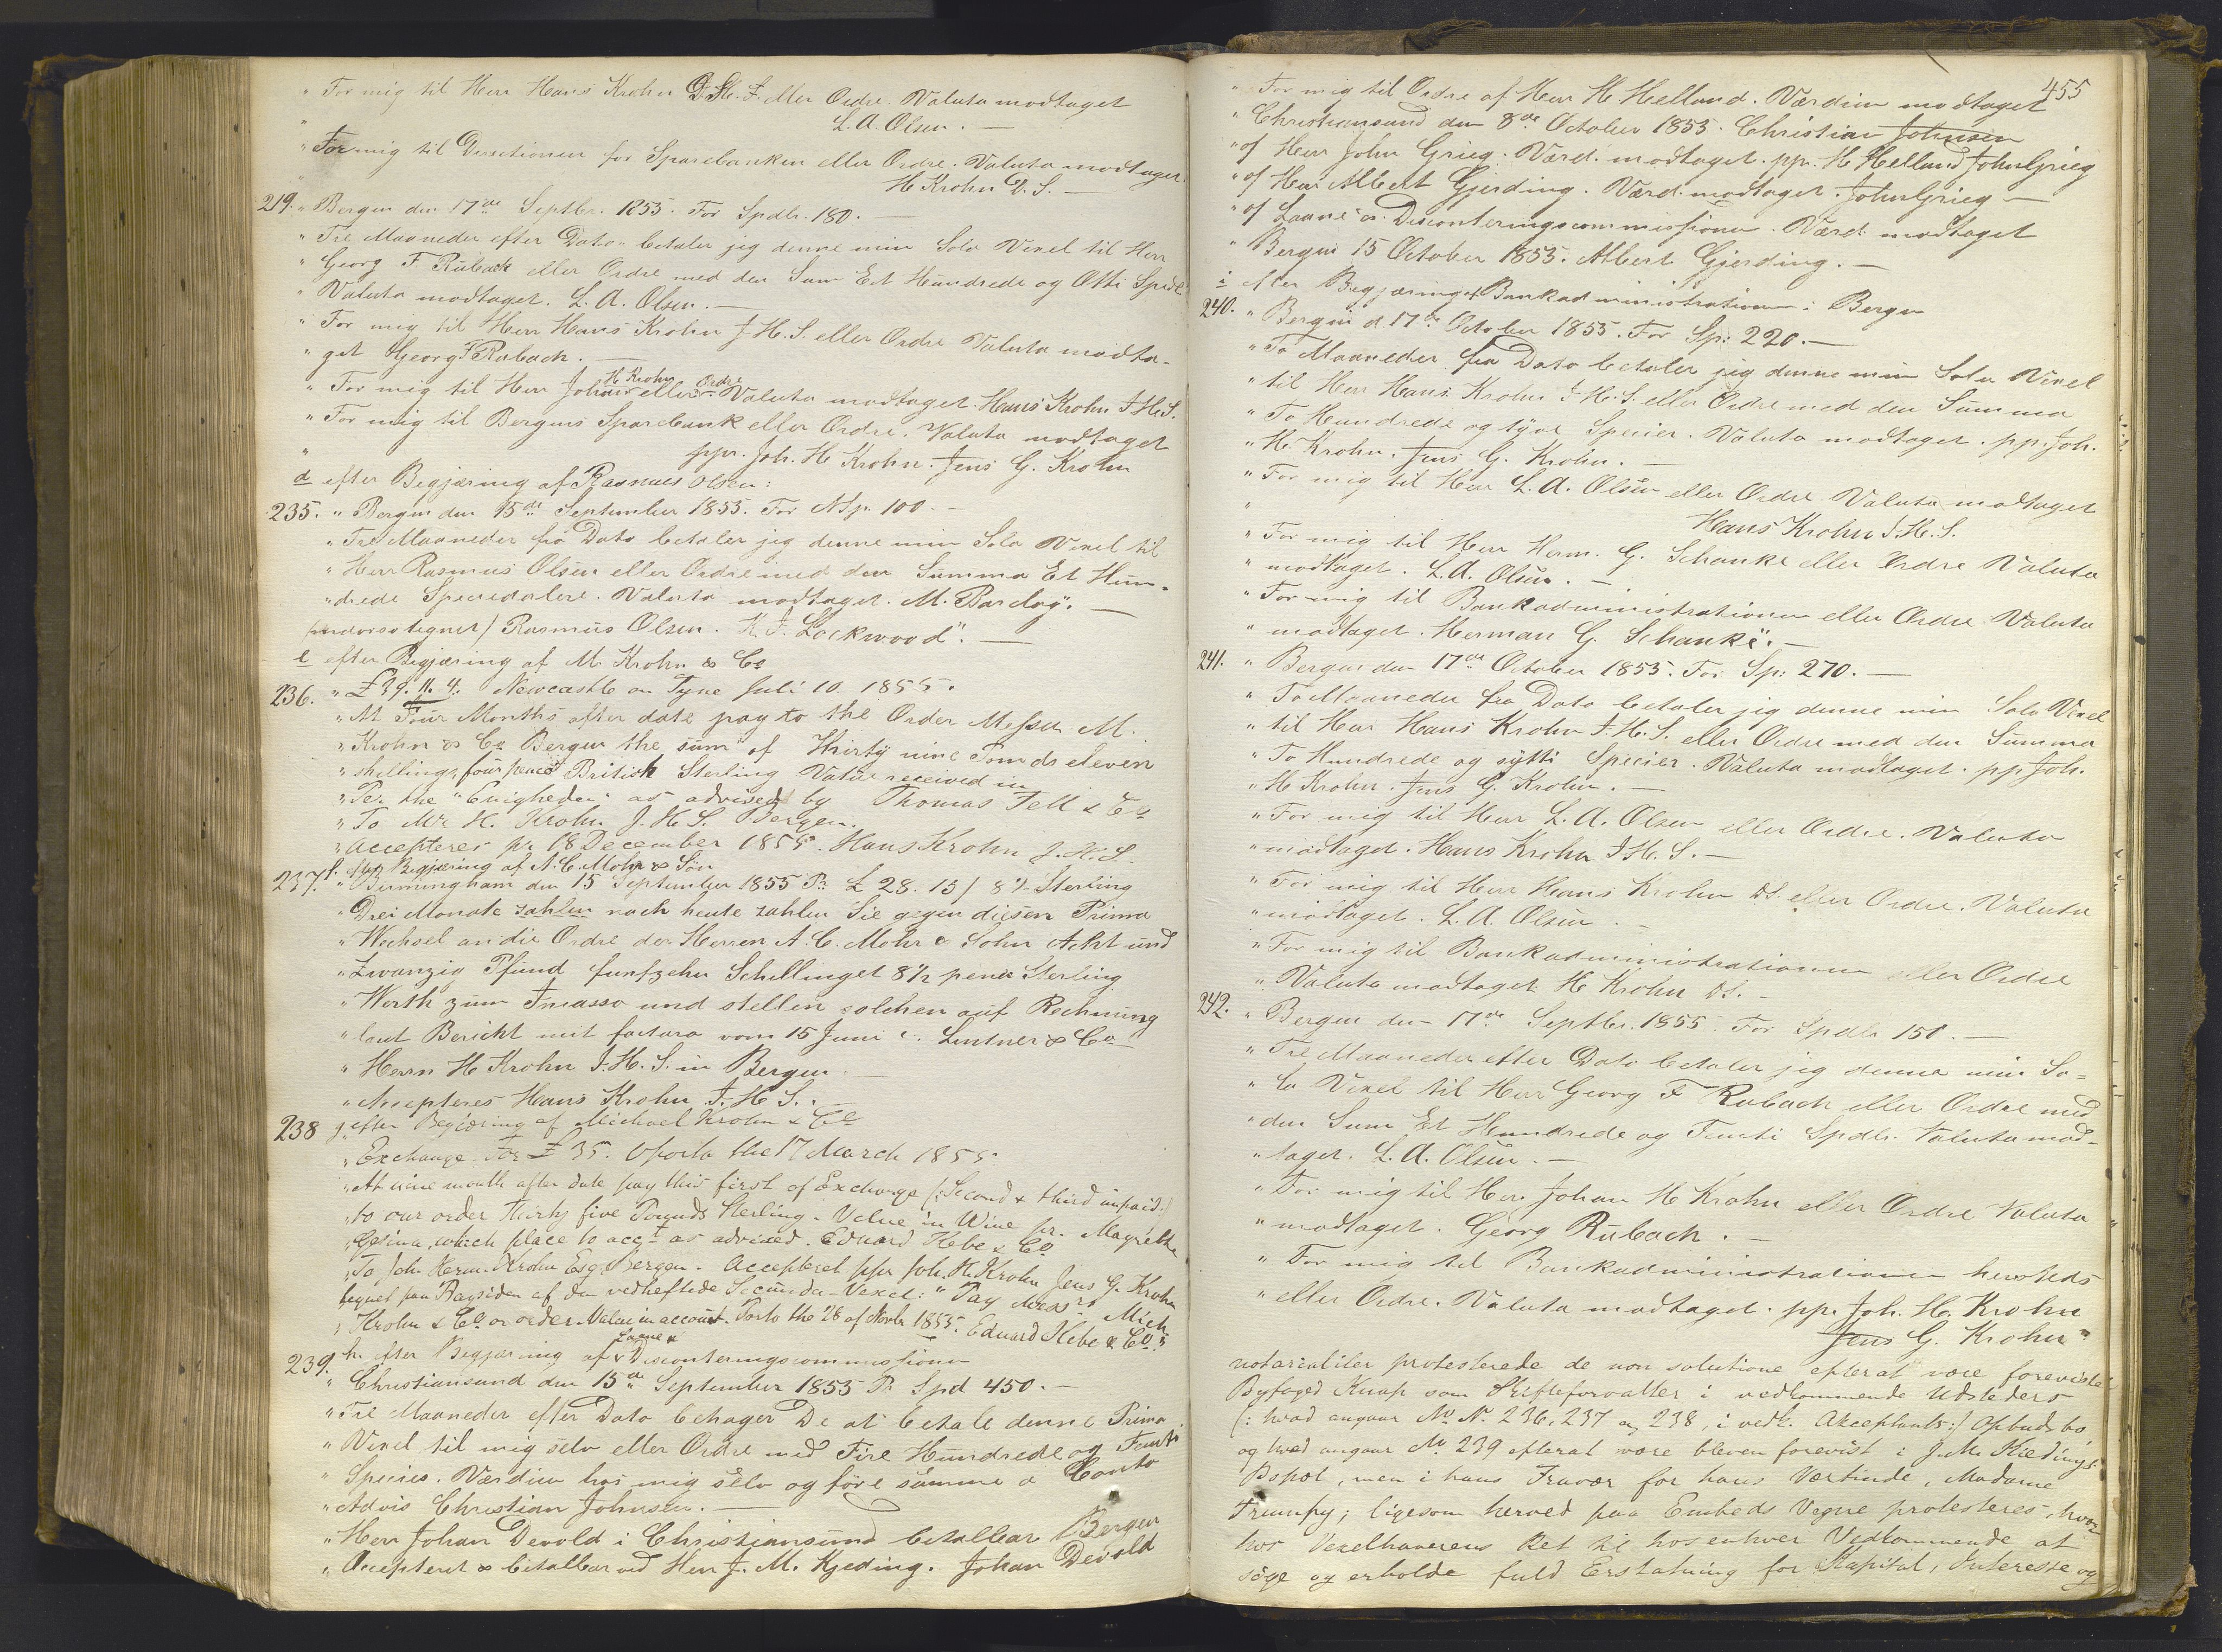 " For mig til Herr Hans Krohn D. S. eller Ordre. Valuta modtaget
" L. A. Olsen. —
" For mig til Directionen for Sparebanken eller Ordre. Valuta modtaget.
H Krohn D. S. —
219. " Bergen den 17de Septbr. 1855. For Spdlr. 180. —
" Tre Maaneder efter Dato betaler jeg denne min Sola Vexel til Herr
" Georg F Rubach eller Ordre med den Sum Et Hundrede og Otti Spedl
" Valuta modtaget. L. A. Olsen. —
" For mig til Herr Hans Krohn J. H. S. eller Ordre Valuta modta-
" get Georg F Rubach. —
" For mig til Herr Johan H Krohn eller Ordre Valuta modtaget. Hans Krohn J. H. S.
" For mig til Bergens Sparebank eller Ordre. Valuta modtaget
" ppr. Joh. H Krohn. Jens G. Krohn
d efter Begjæring af Rasmus Olsen:
235. " Bergen den 15de September 1855. For NSp. 100 —
" Tre Maaneder fra Dato betaler jeg denne min Sola Vexel til
" Herr Rasmus Olsen eller Ordre med den Summa Et Hun-
" drede Speciedalere. Valuta modtaget. M. Barclay. —
(indorsotegnet) Rasmus Olsen. K. J. Lockwood". —
e efter Begjæring af M. Krohn & Co
236. " £ 39. 11. 4. Newcastle on Tyne Juli 10. 1855.
" At Four Months after date pay to the Order Messrs M.
" Krohn & Co Bergen the sum of Thirty nine Pounds eleven
" shellings, four pence British Sterling Value received in
" Per the "Enigheden" as advised by Thomas Fell & Co
" To Mr H. Krohn J. H. S. Bergen.
" Accepteres pr 18 December 1855. Hans Krohn J. H. S.
f. efter Begjæring af A. C. Mohr & Søn
237. " Birmingham den 15 September 1855 Pr £ 28. 15/ 8½ Sterling
" Drei Monate zahlen nach heute zahlen Sie gegen diesen Prima
" Wechsel an die Ordre der Herren A. C. Mohr & Sohn Acht und
" Zwanzig Pfund funfzehn Schillinget 8½ pence Sterling
" Werth zum Incasso und stellen solchen auf Rechnung
" laut Bericht mit factura vom 15 Juni c. Lintner & Co
" Herrn H Krohn J. H. S. in Bergen. —
" Accepteres Hans Krohn J. H S. —
238 g. efter Begjæring af Michael Krohn & Co
" Exchange For £ 35. Oporto the 17 March 1855.
" At nine month after date pay this first of Exchange (: Second & third unpaid :)
" to our order Thirty five Pounds Sterling - Value in Wine pr. Magrethe
" Gesina, which place to acct as advised. Eduard Kebe & Co
" To Joh. Herm. Krohn Esq. Bergen. - Accepteret ppr Joh. H. Krohn Jens G. Krohn
tegnet paa Bagsiden af den vedheftede Secunda-Vexel: " Pay Messrs Mich
" Krohn & Co or order. Value in account. Porto the 28 of Novbr 1855. Eduard Kebe & Co."
h. efter Begjæring af Laane & Disconteringscommissionen
239. " Christiansund den 15de September 1855 Pr. Spd 450. —
" Tre Maaneder efter Dato behager De at betale denne Prima
" Vexel til mig selv eller Ordre med Fire Hundrede og Femti
" Species. Værdien hos mig selv og føre samme a Conto
" Advis Christian Johnsen. —
" Herr Johan Devold i Christiansund betalbar Bergen
" Accepteret & betalbar ved Herr J. M. Kjeding. Johan Devold
455
" For mig til Ordre af Herr H. Helland. Værdien modtaget
" Christiansund den 8de October 1855. Christian Johnsen
" of Herr John Grieg. Værd. modtaget. pp. H Helland John Grieg
" of Herr Albert Gjerding. Værd. modtaget. John Grieg —
" of Laane & Disconteringscommissionen. Værd. modtaget
" Bergen 15 October 1855. Albert Gjerding. —
i efter Begjæring af Bankadministrationen i Bergen
240. " Bergen d. 17de October 1855. For Sp: 220. —
" To Maaneder fra Dato betaler jeg denne min Sola Vexel
" til Herr Hans Krohn J. H. S. eller Ordre med den Summa
" To Hundrede og tyve Specier. Valuta modtaget. pp. Joh.
" H. Krohn. Jens G. Krohn. —
" For mig til Herr L. A. Olsen eller Ordre Valuta modtaget
" Hans Krohn J. H. S.
" For mig til Herr Herm. G. Schanke eller Ordre Valuta
" modtaget. L. A. Olsen. —
" For mig til Bankadministrationen eller Ordre Valuta
" modtaget. Herman G. Schanke". —
241. " Bergen den 17de October 1855. For Sp: 270. —
" To Maaneder fra Dato betaler jeg denne min Sola Vexel
" til Herr Hans Krohn J. H. S. eller Ordre med den Summa
" To Hundrede og sytti Specier. Valuta modtaget. pp Joh.
" H Krohn. Jens G. Krohn. —
" For mig til Herr L. A. Olsen eller Ordre. Valuta
" modtaget. Hans Krohn J H. S. —
" For mig til Herr Hans Krohn DS. eller Ordre. Valuta
" modtaget. L. A. Olsen. —
" For mig til Bankadministrationen eller Ordre
" Valuta modtaget H Krohn DS. —
242. " Bergen den 17de Septbr. 1855. For Spdlr 150. —
" Tre Maaneder efter Dato betaler jeg denne min So-
" la Vexel til Herr Georg F Rubach eller Ordre med
" den Sum Et Hundrede og Femti Spdlr. Valuta mod-
" taget. L. A. Olsen. —
" For mig til Herr Johan H Krohn eller Ordre Valuta
" modtaget. Georg Rubach. —
" For mig til Bankadministrationen hersteds
" eller Ordre. Valuta modtaget. pp. Joh. H. Krohn
Jens G. Krohn"
notarialiter protesterede de non solutione efterat være foreviste
Byfoged Knap som Skifteforvalter i vedkommende Udsteders
(: hvad angaar No No 236, 237 og 238, i vedk. Akceptants :) Opbudsbo,
og hvad angaar No 239 efterat være bleven forevist i J. M. Kiedings
Bopæl, men i hans Fravær for hans Værtinde, Madame
Trumpy; ligesom herved paa Embeds Vegne protesteres, hvor-
hos Vexelhaverens Ret til hos enhver Vedkommende at
söge og erholde fuld Erstatning for Kapital, Interesse og